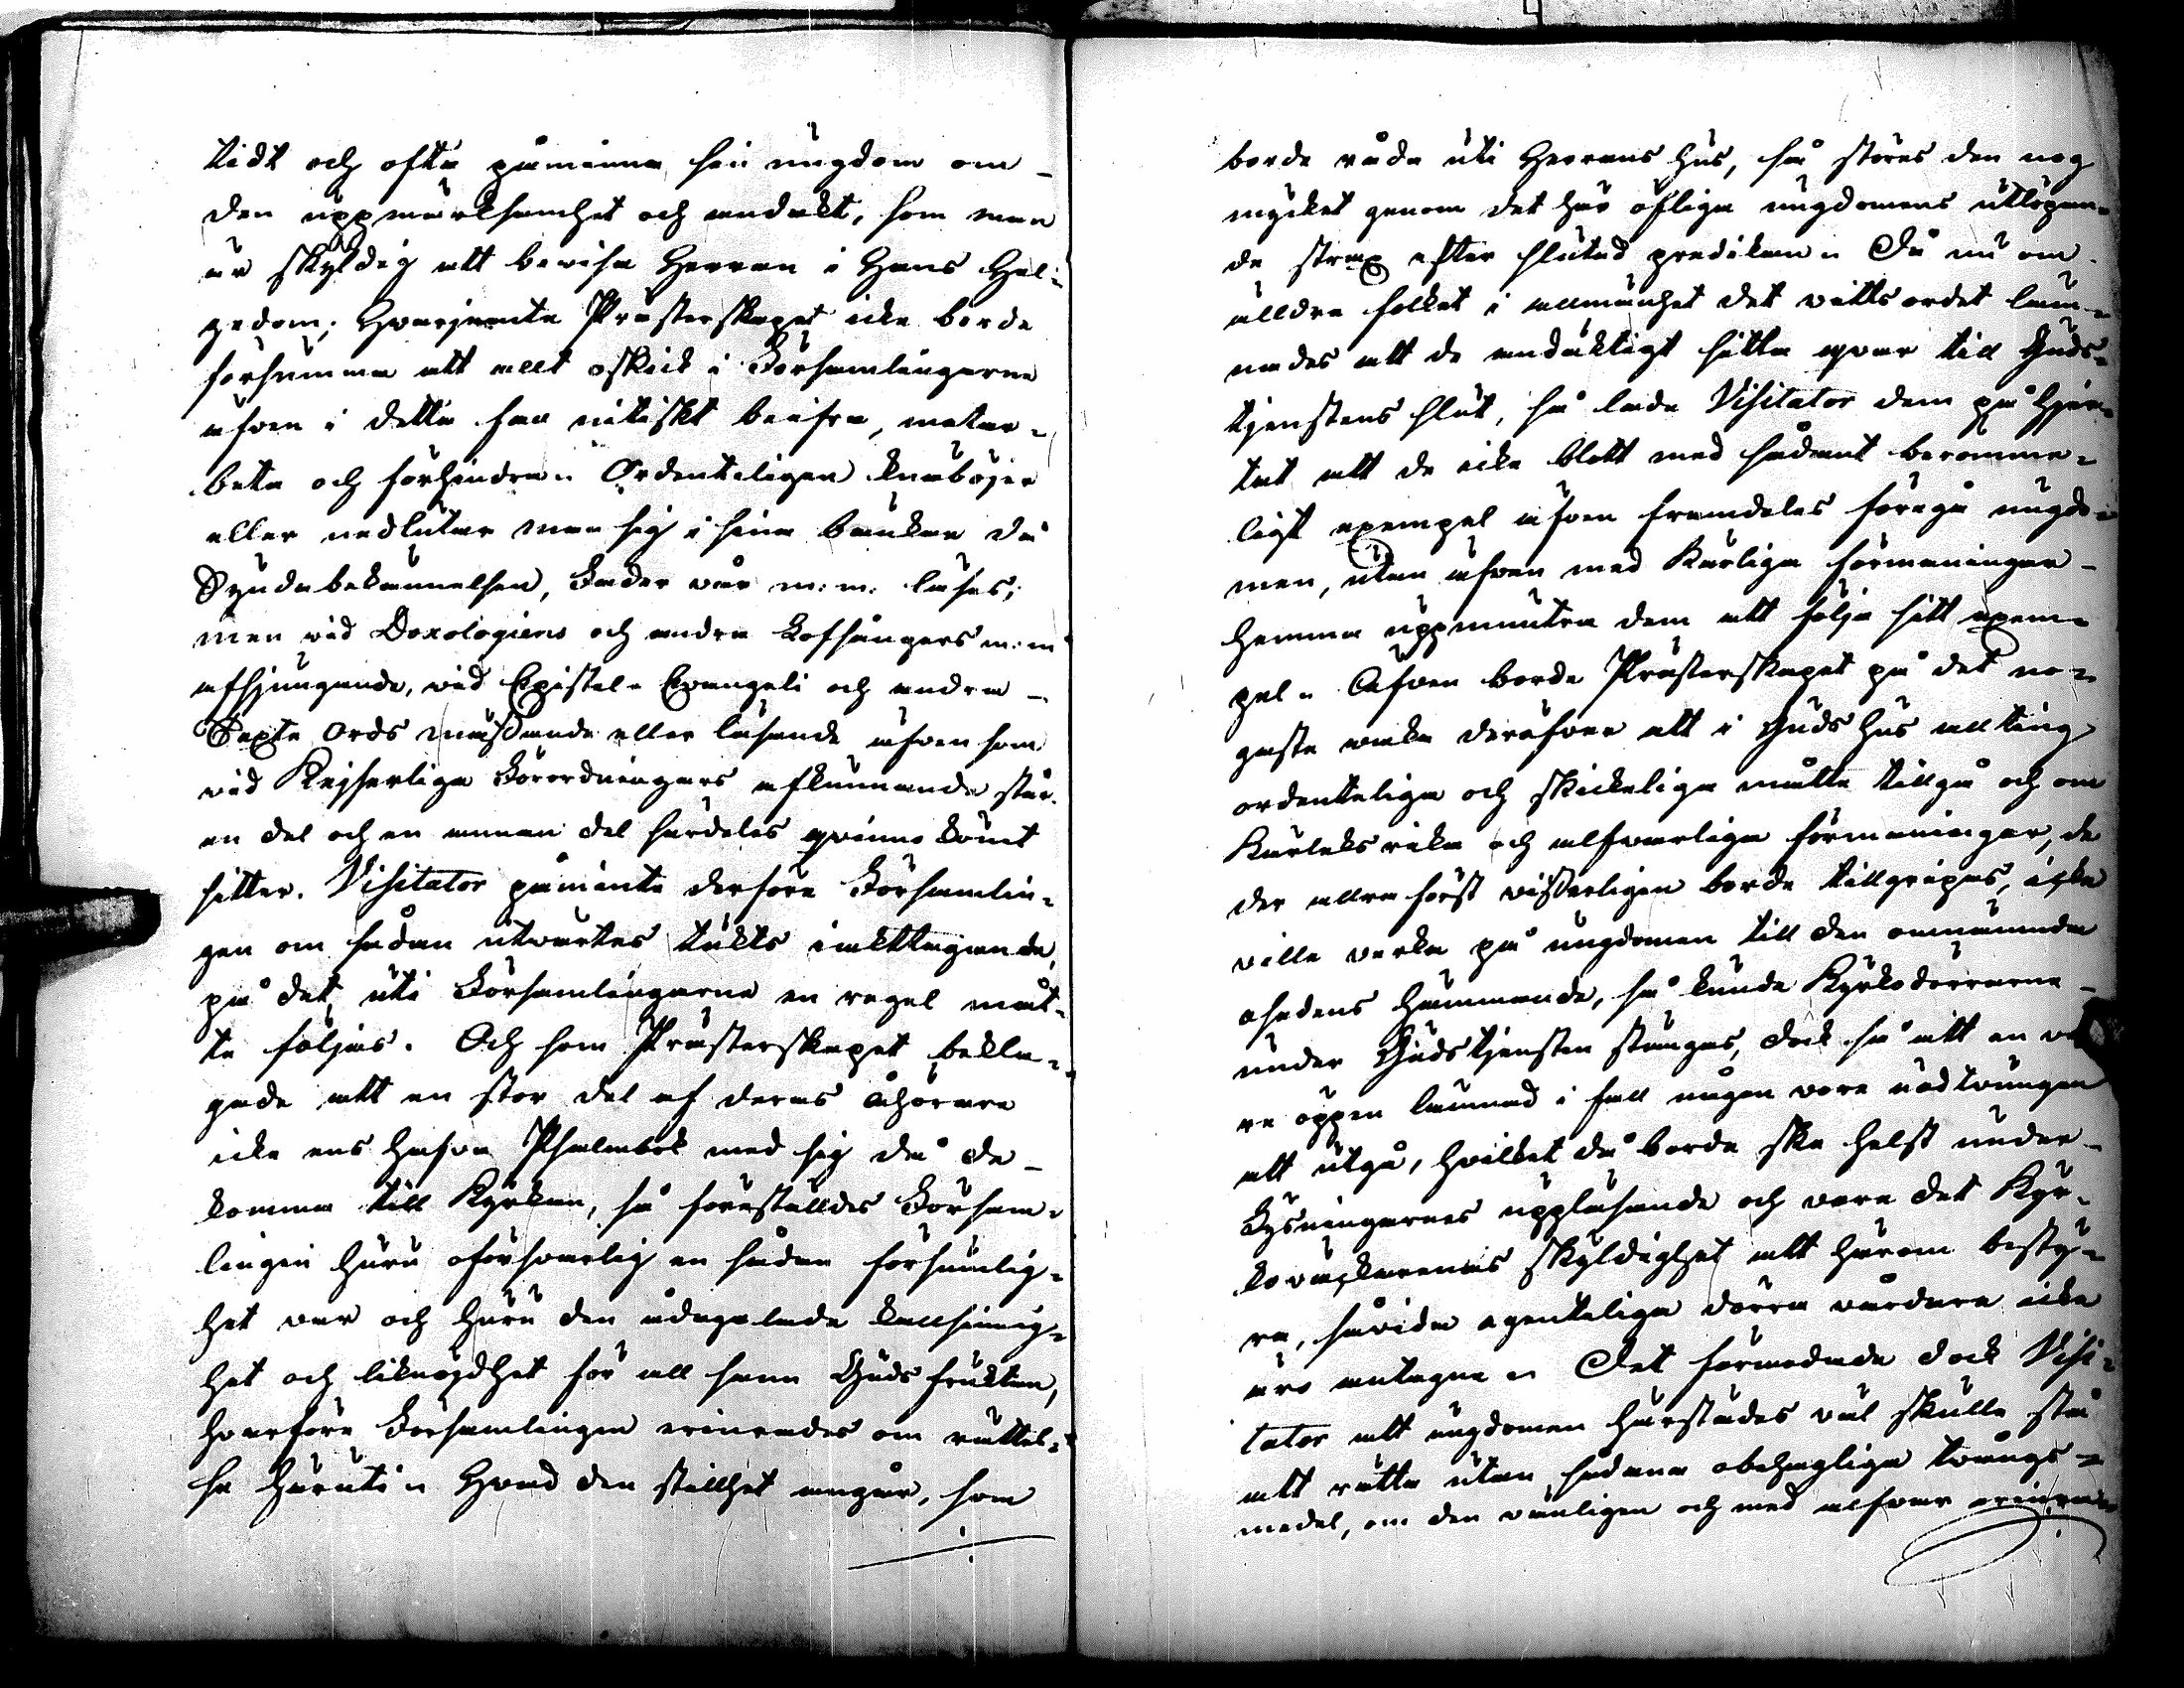 tidt och ofta påminna sin ungdom om
den uppmärksamhet och andakt, som man
är skyldig att bevisa Herran i Hans Hel-
gedom; Hvarjemte Prästerskapet icke borde
försumma att allt oskick i Församlingarne
äfven i detta fall nitiskt beifra, motar-
beta och förhindra. Ordenteligen knäböjer
eller nedlutar man sig i sina bänkar då
Syndabekännelsen, Fader vår m: m: läses;
men vid Doxologiens och andra Lofsångers m: m
afsjungande, vid Epistel- Evangeli och andra
Texte Ords mässande eller läsande äfven som
vid Kejserliga Förordningars afkunnande står
en del och en annan del särdeles qvinnokönet
sitter. Visitator påminte derföre Församlin-
gen om sådan utvärtes tukts iakttagande,
på det, uti Församlingarne en regel måt-
te följas. Och som Prästerskapet bekla-
gade att en stor del af deras åhörare
icke ens hafva Psalmbok med sig då de
komma till Kyrkan, så föreställdes Försam-
lingen huru oförsvarlig en sådan försumlig-
het var och huru den ådagalade kallsinnig-
het och liknöjdhet för all sann Guds fruktan,
hvarföre Församlingen erinrades om rättel-
se häruti. Hvad den stillhet angår, som
borde råda uti Herrans Hus, så störes den nog
mycket genom det här öfliga ungdomens utlöpan-
de strax efter slutad predikan. Då nu om
älldre folket i allmänhet det vittsordet läm-
nades att de andäktigt sitta qvar till Guds-
tjenstens slut, så lade Visitator dem på hjer-
tat att de icke blott med sådant berömme-
ligt exempel äfven framdeles föregå ungdo-
men, utan äfven med kärliga förmaningar
hemma uppmuntra dem att följa sitt exem-
pel. Äfven borde Prästerskapet på det no-
gaste vaka deröfver att i Guds Hus allting
ordenteliga och skickeliga måtte tillgå och om
kärleksrika och alfvarliga förmaningar, de
der allra först visserligen borde tillgripas, icke
ville verka på ungdomen till den omnämnda
osedens hämmande, så kunde Kyrkodörrarne
under Gudstjensten stängas, dock så att en
re öppen lämnad i fall någon vore nödtvungen
att utgå, hvilket då borde ske helst under
Lysningarnes uppläsande och vore det Kyr-
kovägtarenas skyldighet att härom besty-
ra, såvida egenteliga dörra vårdare icke
äro antagne. Det förmodade dock Visi-
tator att ungdomen härstädes väl skulle stå
att rätta utan sådana obehagliga tvångs-
medel, om den vänligen och med alfvar erinrades